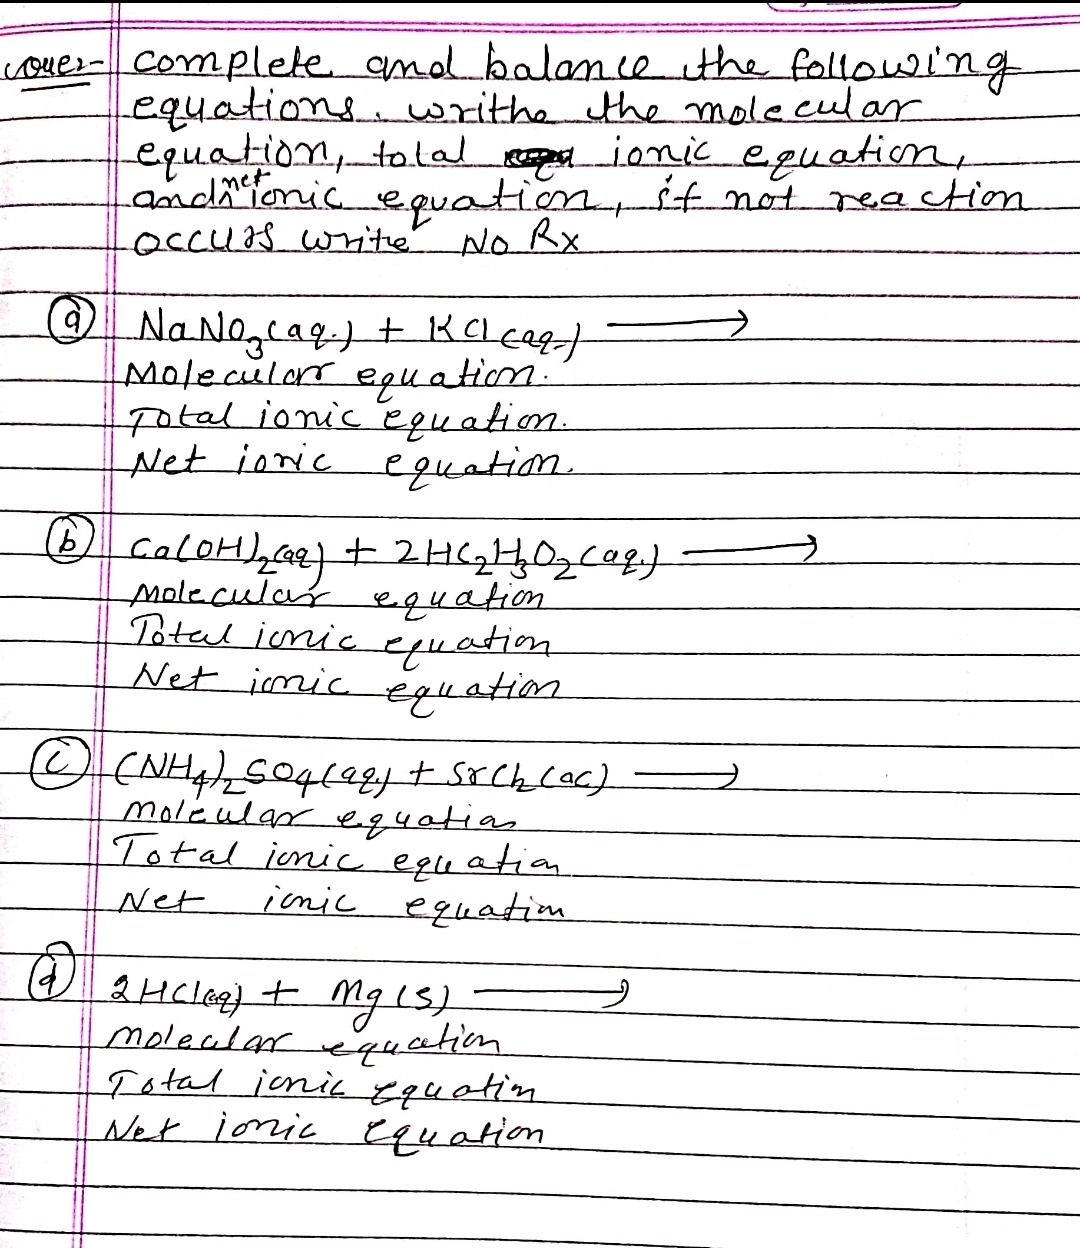 complete and balance the following
equations. writhe the molecular
equation, total ionic equation,
and net ionic equation, if not reaction
occurs write No Rx
(a) NaNO3(aq.) + KCl(aq.) →
Molecular equation.
Total ionic equation.
Net ionic equation.
(b) Ca(OH)2(aq) + 2HC2H3O2(aq.) →
Molecular equation
Total ionic equation
Net ionic equation
(c) (NH4)2SO4(aq) + SrCl2(ac) →
molecular equation
Total ionic equation
Net ionic equation
(d) 2HCl(aq) + Mg(s) →
molecular equation
Total ionic equation
Net ionic equation